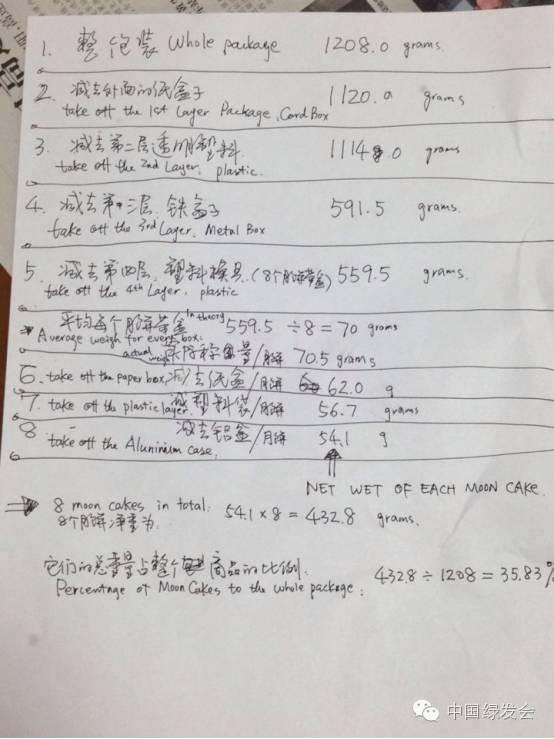 1. 整包装 Whole package 1208.0 grams.
2. 减去外面的纸盒子 1120.0 grams
take off the 1st Layer Package, Card Box
3. 减去第二层透明塑料 1114.0 grams
take off the 2nd Layer, plastic.
4. 减去第三层, 铁盒子 591.5 grams.
take off the 3rd Layer, Metal Box
5. 减去第四层, 塑料模具, (8个月饼带盒) 559.5 grams.
take off the 4th Layer, plastic
平均每个月饼带盒 In theory 559.5 ÷ 8 = 70 grams
Average weigh for every box:
actual weigh 实际称量/月饼 70.5 grams
6. take off the paper box, 减去纸盒/月饼 62.0 g
7. take off the plastic layer. 减塑料袋/月饼 56.7 grams
8 减去铝盒/月饼 54.1 g
take off the Aluminium case.
NET WET OF EACH MOON CAKE.
8 moon cakes in total: 54.1 x 8 = 432.8 grams.
8个月饼净重为
它们的总重量占整个商品的比例.
Percentage of Moon Cakes to the whole package: 432.8 ÷ 1208 = 35.83%
中国绿发会